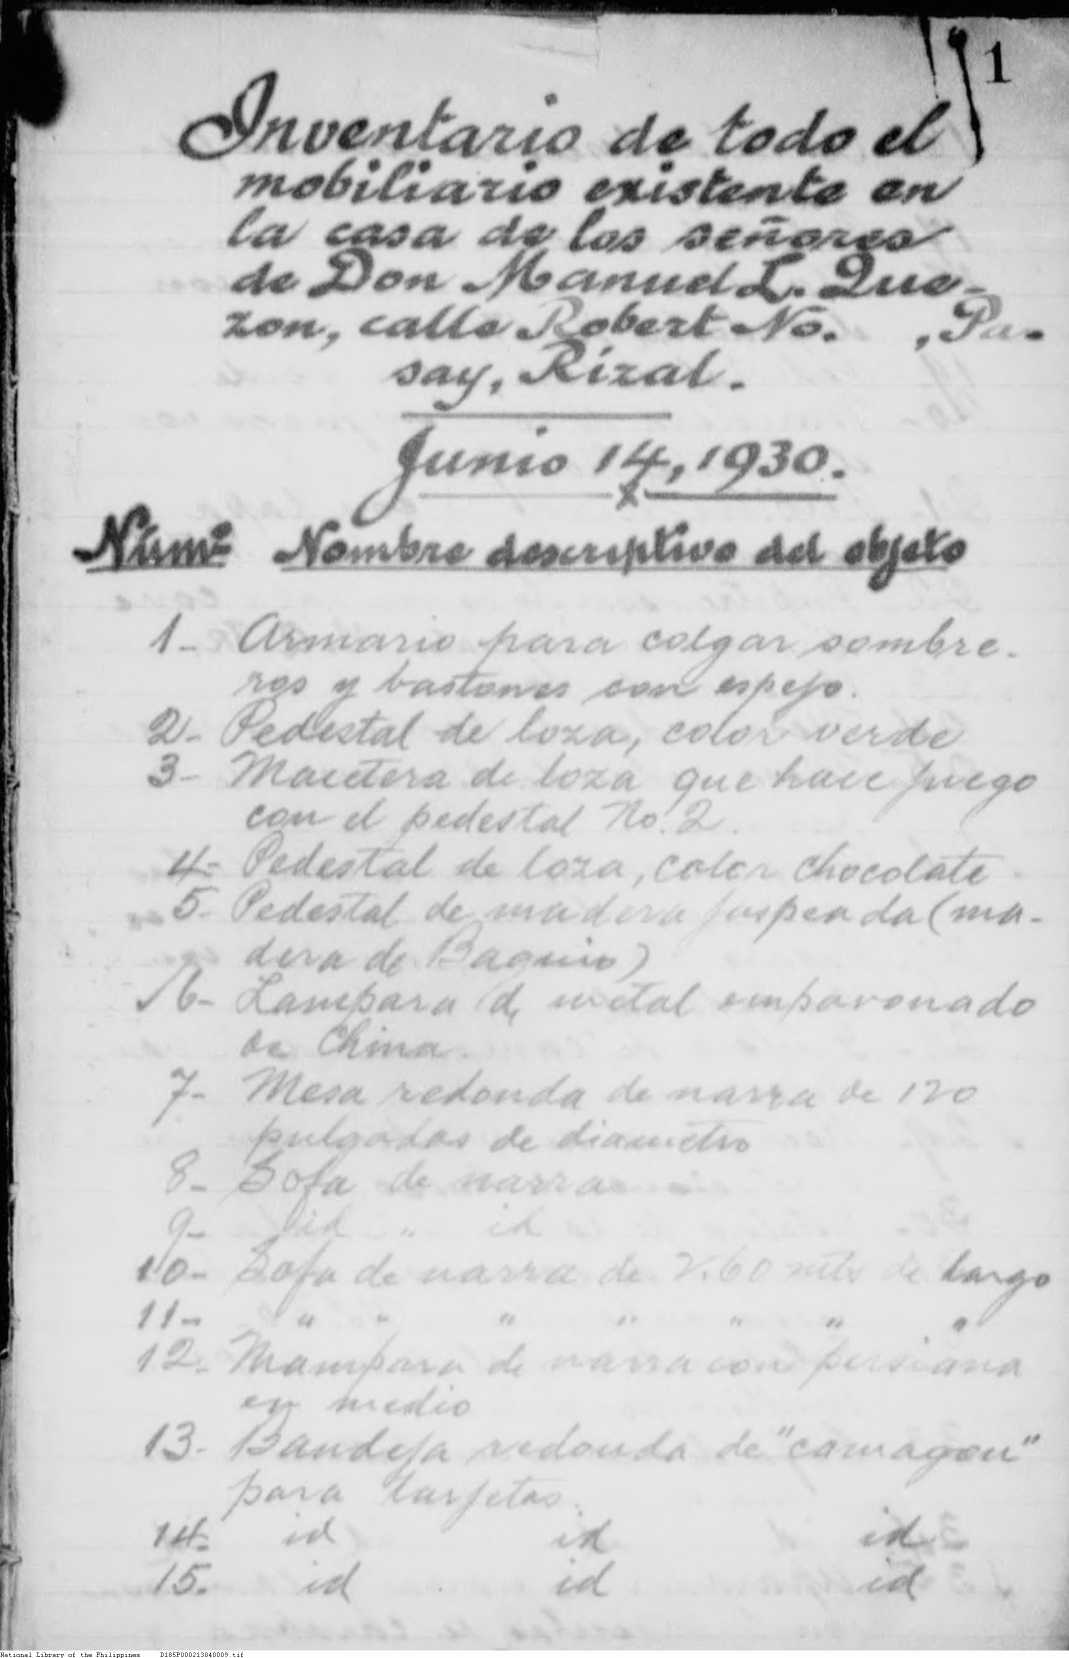 1
Inventario de todo el
mobiliario existente en
la casa de los señores
de Don Manuel L. Que-
zon, calle Robert No. , Pa-
say, Rizal.
Junio 14, 1930.
x
Númº Nombre descriptivo del objeto
1- Armario para colgar sombre-
ros y bastones con espejo.
2- Pedestal de loza, color verde
3- Macetera de loza que hace juego
con el pedestal No. 2.
4- Pedestal de loza, color chocolate
5- Pedestal de madera jaspeada (ma-
dera de Baguio)
6- Lampara de metal empavonado
de China.
7- Mesa redonda de narra de 120
pulgadas de diametro
8- Sofa de narra
9- id " id
10- Sofa de narra de 2.60 mts de largo
11- " " " " " " "
12- Mampara de narra con persiana
en medio
13- Bandeja redonda de "camagon"
para tarjetas.
14- id id id
15- id id id
National Library of the Philippines D185P000213040009.tif